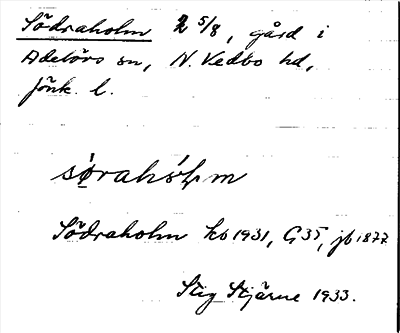 Södraholm 2 5/8, gård i
Adelövs sn, N. Vedbo hd,
Jönk. l.
Södraholm hs 1931, G35, jb 1877
Stig Stjärne 1933.